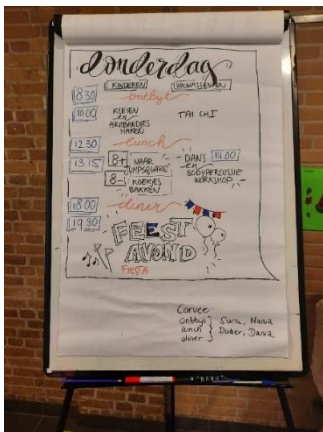 donderdag
KINDEREN VOLWASSENEN
8:30 ontbyt
10:00 TAI CHI
en
ARMBANDJES
MAKEN
12.30 lunch
13.15 8+ NAAR JUMPSQUARE
8- KOEKJES BAKKEN
DANS 14.00
en
BODYPERCUSSIE
WORKSHOP
18.00 diner
19.30 FEEST
AVOND
FIESTA
Corvee
ontbijt
lunch
diner
Sara,